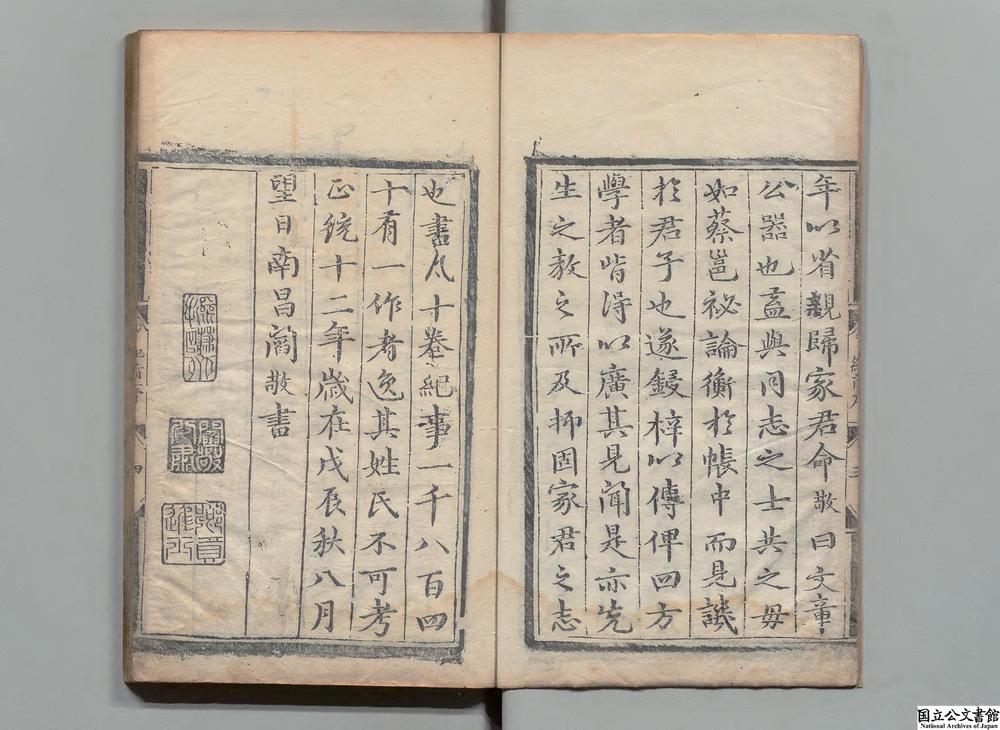 年以省親歸家君命敬曰文章
公噐也盖與同志之士共之毋
如蔡邕祕論衡於帳中而見譏
於君子也遂鋟梓以傳俾四方
學者皆淂以廣其見聞是亦先
生之敎之所及抑固家君之志
也書凡十卷紀事一千八百四
十有一作者逸其姓氏不可考
正統十二年歲在戊辰秋八月
望日南昌閻敬書
国立公文書館
National Archives of Japan